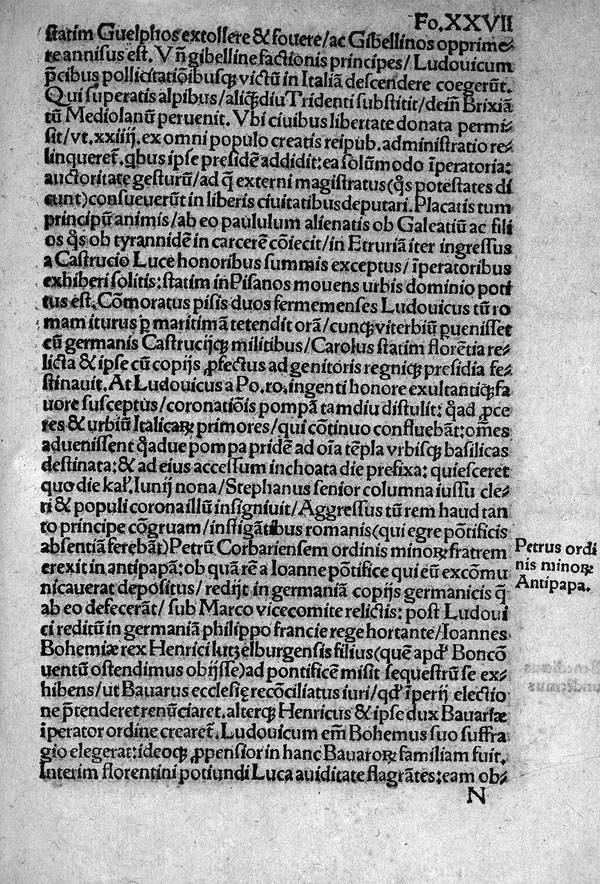 Fo.XXVII
statim Guelphos extollere & fouere/ac Gibellinos opprime⸗
re annisus est. Vñ gibelline factionis principes/Ludouicum
p̃cibus pollicitatiõibusqꝫ victũ in Italiã descendere coegerũt.
Qui superatis alpibus/aliqꝫdiu Tridenti substitit/deiñ Brixiã
tũ Mediolanũ peruenit. Vbi ciuibus libertate donata permi⸗
sit/vt.xxiiij.ex omni populo creatis reipub.administratio re⸗
linqueret᷑.qbus ipse presidẽ addidit:ea solũmodo ĩperatoria:
auctoritate gesturũ/ad q̃ externi magistratus(q̃s potestates di
cunt)consueuerũt in liberis ciuitatibus deputari.Placatis tum
principũ animis/ab eo paululum alienatis ob Galeatiũ ac fili
os q̃s ob tyrannidẽ in carcerẽ cõiecit/in Etruriã iter ingressus
a Castrucio Luce honoribus summis exceptus/ĩperatoribus
exhiberi solitis:statim in Pisanos mouens urbis dominio poti
tus est.Cõmoratus pisis duos ferme menses Ludouicus tũ ro
mam iturus ꝑ maritimã tetendit orã/cunqꝫ viterbiũ puenisset
cũ germanis Castrucijqꝫ militibus/Carolus statim florẽtia re⸗
licta & ipse cũ copijs ꝓfectus ad genitoris regniqꝫ presidia fe⸗
stinauit.At Ludouicus a Po.ro.ingenti honore exultantiqꝫ fa
uore susceptus/coronatiõis pompã tamdiu distulit:q̃ad ꝓce
res & urbiũ Italicaꝝ primores/qui cõtinuo confluebãt:om̃es
aduenissent q̃adue pompa pridẽ ad oĩa tẽpla vrbisqꝫ basilicas
destinata:& ad eius accessum inchoata die prefixa:quiesceret
quo die kal̃.Iunij nona/Stephanus senior columna iussu cle⸗
ri & populi corona illũ insigniuit/Aggressus tũ rem haud tan
to principe cõgruam/instigãtibus romanis(qui egre põtificis
absentiã ferebãt)Petrũ Corbariensem ordinis minoꝝ fratrem
erexit in antipapã:ob quã rẽ a Ioanne põtifice qui eũ excõmu
nicauerat depositus/redijt in germaniã copijs germanicis q̃
ab eo defecerãt/sub Marco vicecomite relictis:post Ludoui
ci reditũ in germaniã philippo francie rege hortante/Ioannes
Bohemiæ rex Henrici lutzelburgensis filius(quẽ apd̃ Boncõ
uentũ ostendimus obijsse)ad pontificẽ misit sequestrũ se ex⸗
hibens/ut Bauarus ecclesię recõciliatus iuri/qd̃ ĩperij electio
ne p̃tenderet renũciaret.alterqꝫ Henricus & ipse dux Bauariæ
ĩperator ordine crearet᷑.Ludouicum em̃ Bohemus suo suffra
gio elegerat:ideoqꝫ ꝓpensior in hanc Bauaroꝝ familiam fuit.
Interim florentini potiundi Luca auiditate flagrãtes:eam ob⸗
N
Petrus ordi
nis minoꝝ
Antipapa.